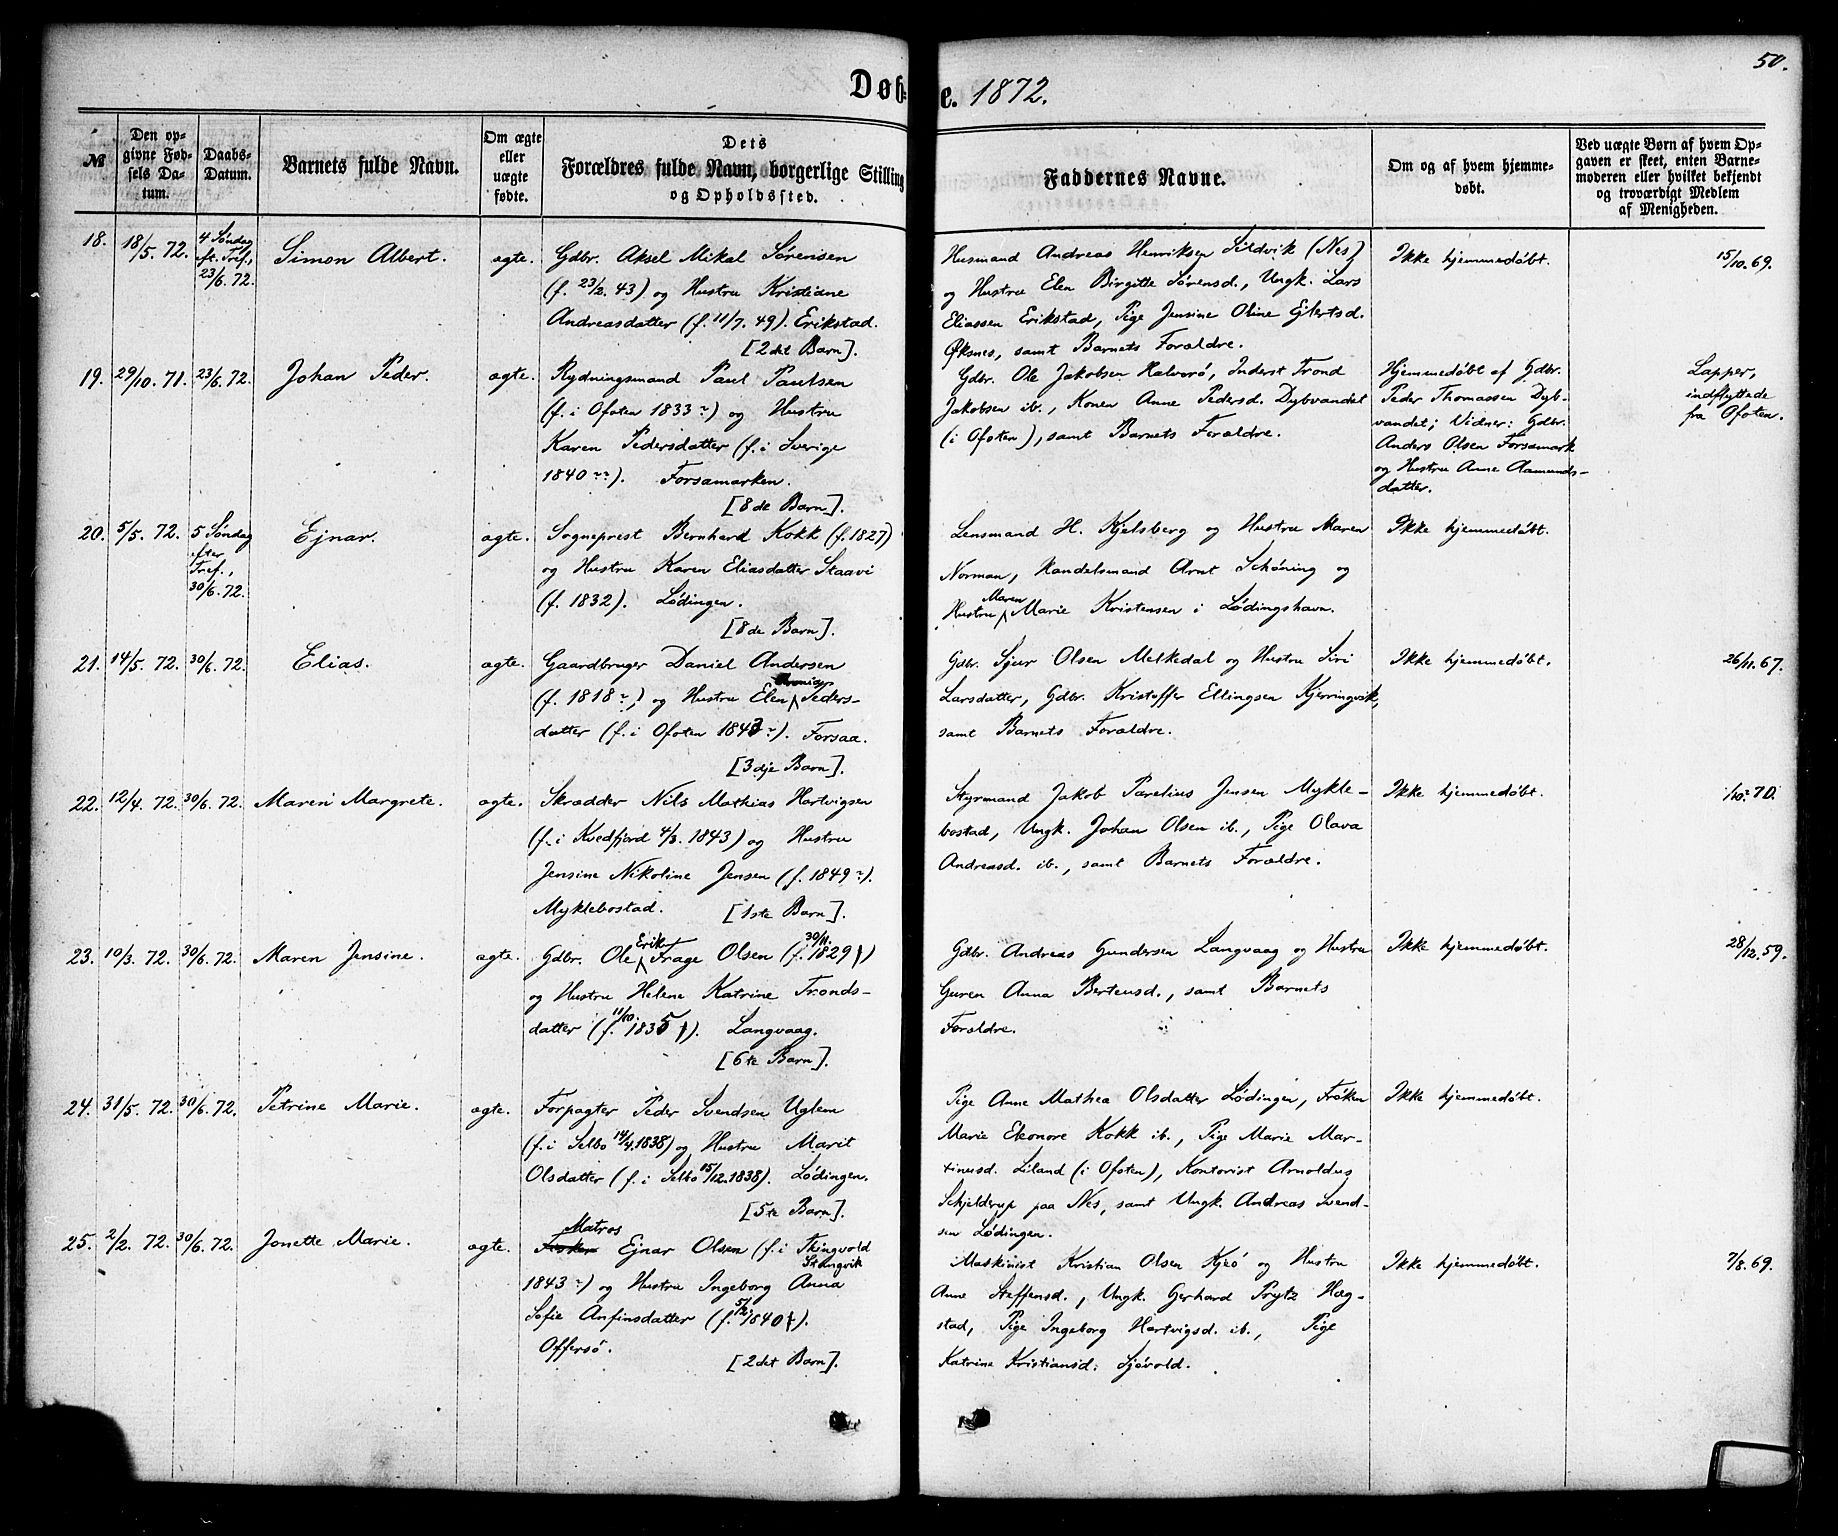 50.
Døbte. 1872.
№
Den opgivne Fødsels Datum.
Daabs-Datum.
Barnets fulde Navn.
Om ægte eller uægte fødte.
Dets Forældres fulde Navn, borgerlige Stilling og Opholdssted.
Faddernes Navne.
Om og af hvem hjemmedøbt.
Ved uægte Børn af hvem Opgaven er skeet, enten Barnemoderen eller hvilket bekjendt og troværdigt Medlem af Menigheden.
18. 18/5. 72. 4 Søndag eft. Tref., 23/6. 72. Simon Albert. ægte.
Gdbr. Aksel Mikal Sørensen
(f. 23/2. 43) og Hustru Kristiane
Andreasdatter (f. 11/7. 49). Erikstad.
[2det Barn].
Husmand Andreas Henriksen Sildvik (Nes)
og Hustru Elen Birgitte Sørensd., Ungk. Lars
Eliassen Erikstad, Pige Jensine Oline Ejlertsd.
Øksnes, samt Barnets Forældre.
Ikke hjemmedøbt.
15/10. 69.
19. 29/10. 71. 23/6. 72. Johan Peder. ægte.
Rydningsmand Paul Paulsen
(f. i Ofoten 1833 ?) og Hustru
Karen Pedersdatter (f. i Sverige
1840 ??). Forsamarken.
[8de Barn].
Gdbr. Ole Jakobsen Halvarø, Inderst Trond
Jakobsen ib., Konen Anne Pedersd. Dybvandet
(i Ofoten), samt Barnets Forældre.
Hjemmedøbt af Gdbr.
Peder Thomassen Dyb-
vandet; Vidner: Gdbr.
Anders Olsen Forsamark
og Hustru Anne Aamunds-
datter.
Lapper,
indflyttede
fra Ofoten.
20. 5/5. 72. 5 Søndag efter Tref., 30/6. 72. Ejnar. ægte.
Sogneprest Bernhard Kokk (f. 1827)
og Hustru Karen Eliasdatter Staavi
(f. 1832). Lødingen.
[8de Barn].
Lensmand H. Kjelsberg og Hustru Maren
Norman, Handelsmand Arnt Schøning og
Hustru Maren Marie Kristensen i Lødingshavn.
Ikke hjemmedøbt.
21. 14/5. 72. 30/6. 72. Elias. ægte.
Gaardbruger Daniel Andersen
(f. 1818 ?) og Hustru Elen Peders-
datter (f. i Ofoten 1843 ?). Forsaa.
[3dje Barn].
Gdbr. Sjur Olsen Melkedal og Hustru Siri
Larsdatter, Gdbr. Kristoffer Ellingsen Kjerringvik,
samt Barnets Forældre.
Ikke hjemmedøbt.
26/11. 67.
22. 12/4. 72. 30/6. 72. Maren Margrete. ægte.
Skrædder Nils Mathias Hartvigsen
(f. i Kvedfjord 4/3. 1843) og Hustru
Jensine Nikoline Jensen (f. 1849 ?).
Myklebostad. [1ste Barn].
Styrmand Jakob Parelius Jensen Mykle-
bostad, Ungk. Johan Olsen ib., Pige Olava
Andreasd. ib., samt Barnets Forældre.
Ikke hjemmedøbt.
1/10. 70.
23. 10/3. 72. 30/6. 72. Maren Jensine. ægte.
Gdbr. Ole Erik Trage Olsen (f. 30/11. 1829)
og Hustru Helene Katrine Tronds-
datter (f. 11/10. 1835). Langvaag.
[6te Barn].
Gdbr. Andreas Gundersen Langvaag og Hustru
Guren Anna Berteusd., samt Barnets
Forældre.
Ikke hjemmedøbt.
28/12. 59.
24. 31/5. 72. 30/6. 72. Petrine Marie. ægte.
Forpagter Peder Svendsen Uglem
(f. i Selbo 14/4. 1838) og Hustru Marit
Olsdatter (f. i Selbo 15/12. 1838). Lødingen.
[5te Barn].
Pige Anne Mathea Olsdatter Lødingen, Frøken
Marie Eleonore Kokk ib., Pige Marie Mar-
tinusd. Liland (i Ofoten), Kontorist Arnoldus
Schjelderup paa Nes, samt Ungk. Andreas Svend-
sen Lødingen.
Ikke hjemmedøbt.
25. 2/2. 72. 30/6. 72. Jonette Marie. ægte.
Matros
Fisker Ejnar Olsen (f. i Thingvold
Stangvik
1843 ?) og Hustru Ingeborg Anna
Sofie Anfinsdatter (f. 5/12. 1840).
Offersø. [2det Barn].
Maskinist Kristian Olsen Kjeø og Hustru
Anne Steffensd., Ungk. Gerhard Prytz Hæg-
stad, Pige Ingeborg Hartvigsd. ib., Pige
Katrine Kristiansd. Sjøvold.
Ikke hjemmedøbt.
7/8. 69.